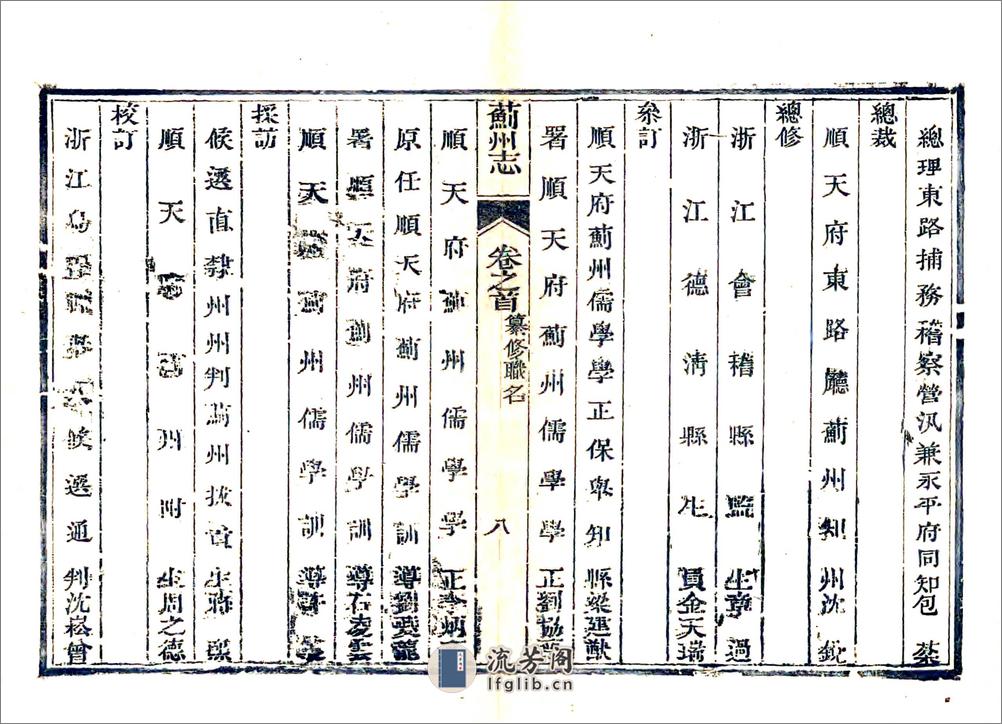 總理東路捕務稽察營汛兼永平府同知包 棻
總裁
順天府東路廳薊州知州沈銳
總修
浙江會稽縣監生章過
浙江德清縣生員金天瑞
參訂
順天府薊州儒學學正保舉知縣梁建猷
署順天府薊州儒學學正劉協
薊州志
卷之首
纂修職名
八
順天府薊州儒學學正李炳
原任順天府薊州儒學訓導劉 龍
署順天府薊州儒學訓導石凌雲
順天府薊州儒學訓導
採訪
候選直隸州州判薊州拔貢生蔣
順天 州附生周之德
校訂
浙江烏 候選通判沈崧曾
流芳阁
lfglib.cn